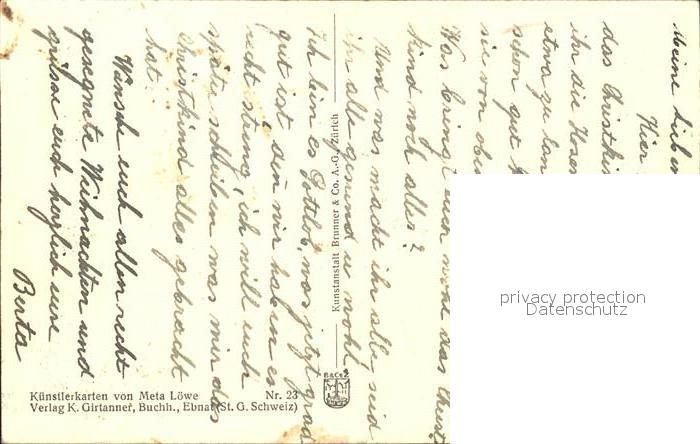 Meine Lieben
Hier
das Christki
ihr die Hosen
etwa zu lan
schon gut
sie von obe
Was bringt euch wohl das Christ
kind noch alles?
Und was macht ihr alle, seid
ihr alle gesund u. wohl.
Ich bin es Gottlob, was jetzt grad
gut ist, den mir haben es
recht streng, ich will euch
später schreiben was mir das
Christkind alles gebracht
hat.
Wünsche euch allen recht
gesegnete Weihnachten und
grüsse euch herzlich eure
Berta
Kunstanstalt Brunner & Co. A.-G., Zürich
B&CoZ
Künstlerkarten von Meta Löwe Nr. 23
Verlag K. Girtanner, Buchh., Ebnat (St. G. Schweiz)
privacy protection
Datenschutz